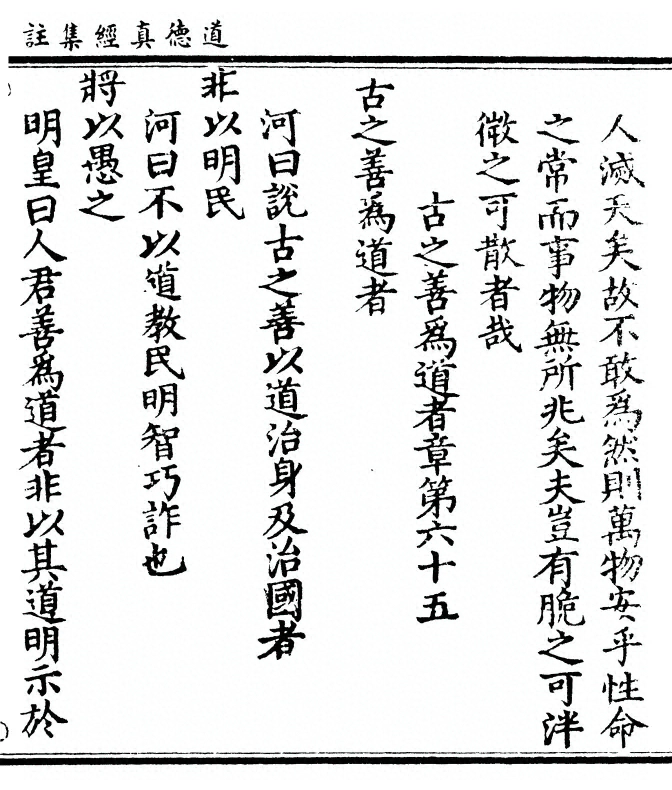 道德真經集註
人滅天矣故不敢爲然則萬物安乎性命
之常而事物無所兆矣夫豈有脆之可泮
微之可散者哉
古之善爲道者章第六十五
古之善爲道者
河曰說古之善以道治身及治國者
非以明民
河曰不以道教民明智巧詐也
將以愚之
明皇曰人君善爲道者非以其道明示於